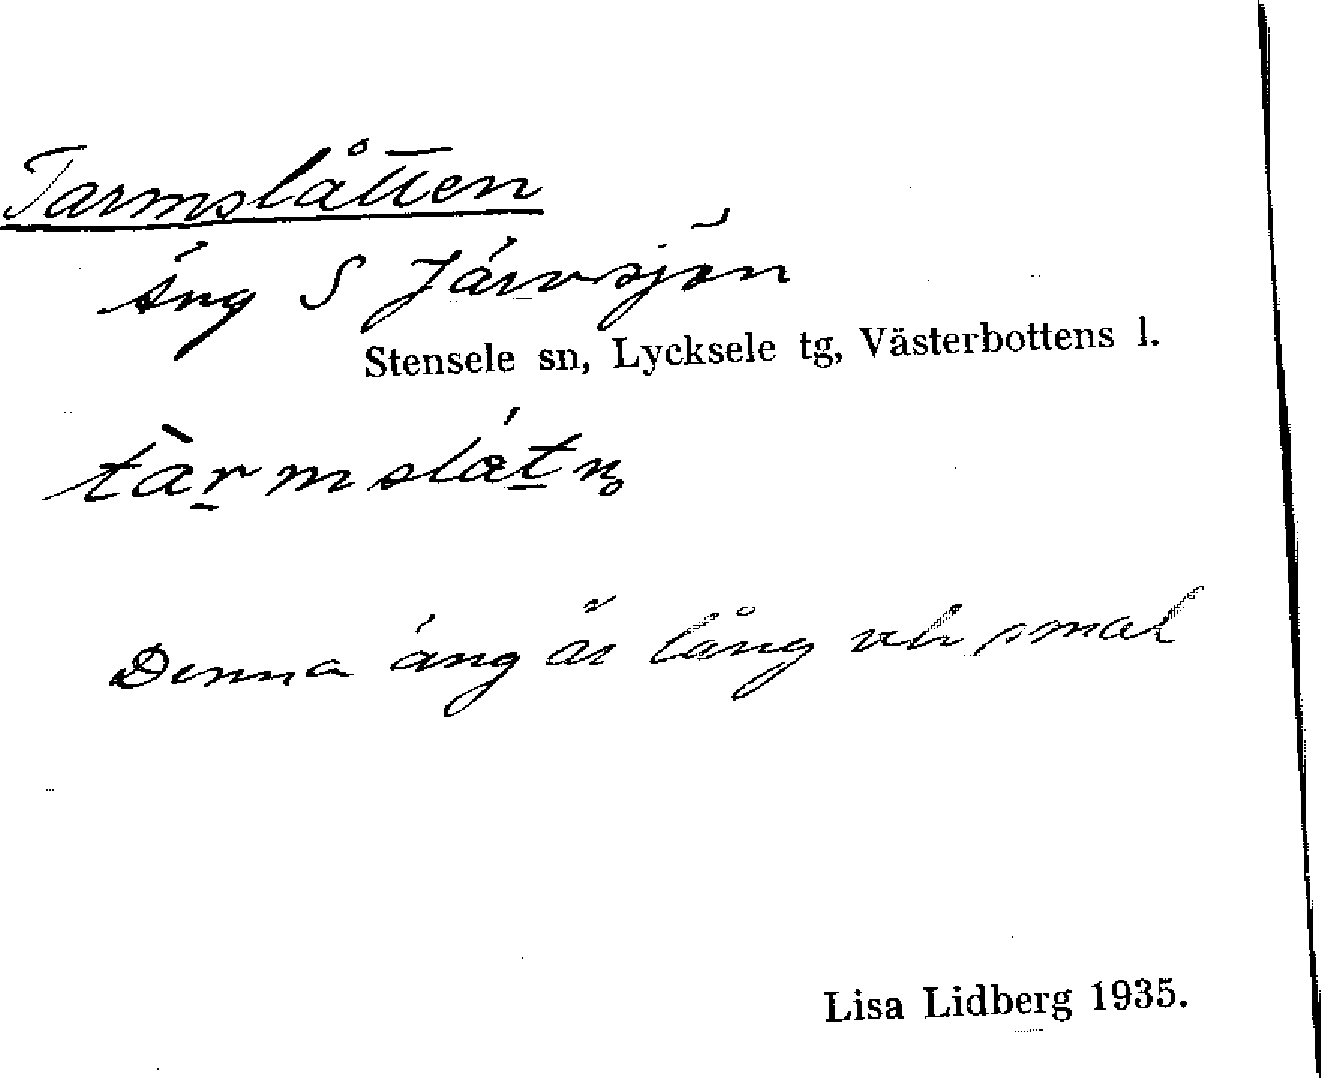 Tarmslåtten
Äng S Järvsjön
Stensele sn, Lycksele tg, Västerbottens l.
tàrmslátn̥
Denna äng är lång och smal
Lisa Lidberg 1935.